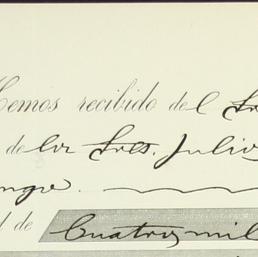 Hemos recibido del
de los Sres. Julio
d de
Cuatro mil